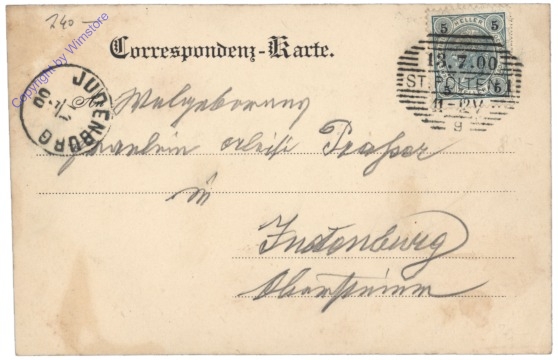 240
Copyright by Wimstore
Correspondenz-Karte.
5 HELLER 5
13.7.00
ST. PÖLTEN
11-12V
9
JUDENBURG
00
Wolgeboren
Fräulein
in
Judenburg
Obersteier